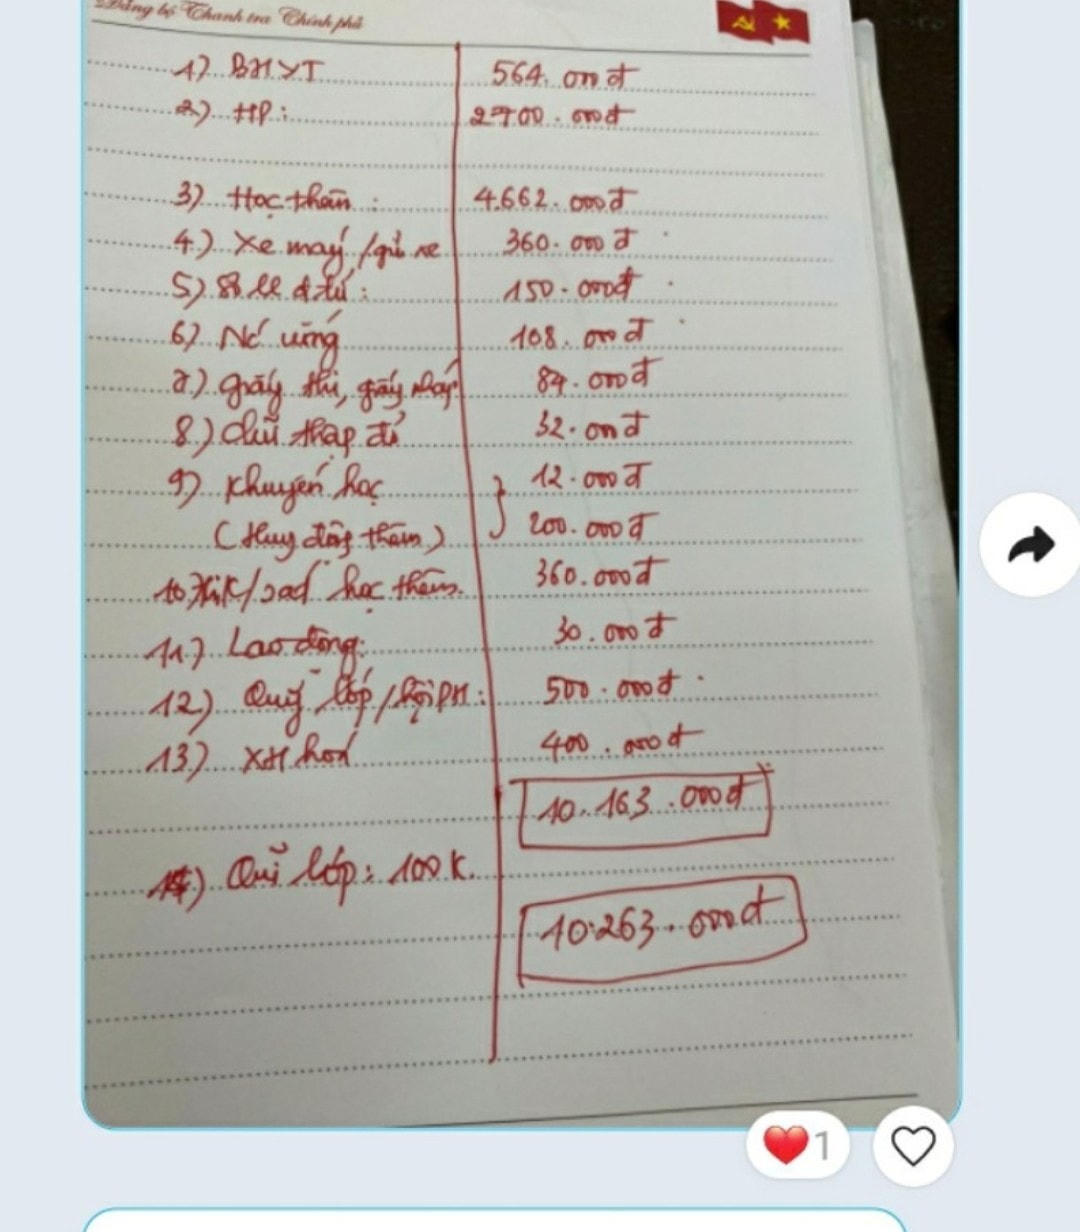 Đảng bộ Thanh tra Chính phủ
1) BHYT 564.000đ
2) HP: 2700.000đ
3) Học thêm: 4.662.000đ
4.) Xe máy/gửi xe 360.000đ
5) Sổ LL đ.tử: 150.000đ
6) Nc uống 108.000đ
7.) giấy thi, giấy nháp 84.000đ
8.) chữ thập đỏ 32.000đ
9) Khuyến học 12.000đ
(Huy động thêm) 200.000đ
10) học thêm. 360.000đ
11.) Lao động: 30.000đ
12.) Quỹ lớp/hội PH: 500.000đ
13.) XH hoá 400.000đ
10.163.000đ
14) Quĩ lớp: 100K.
10.263.000đ
1